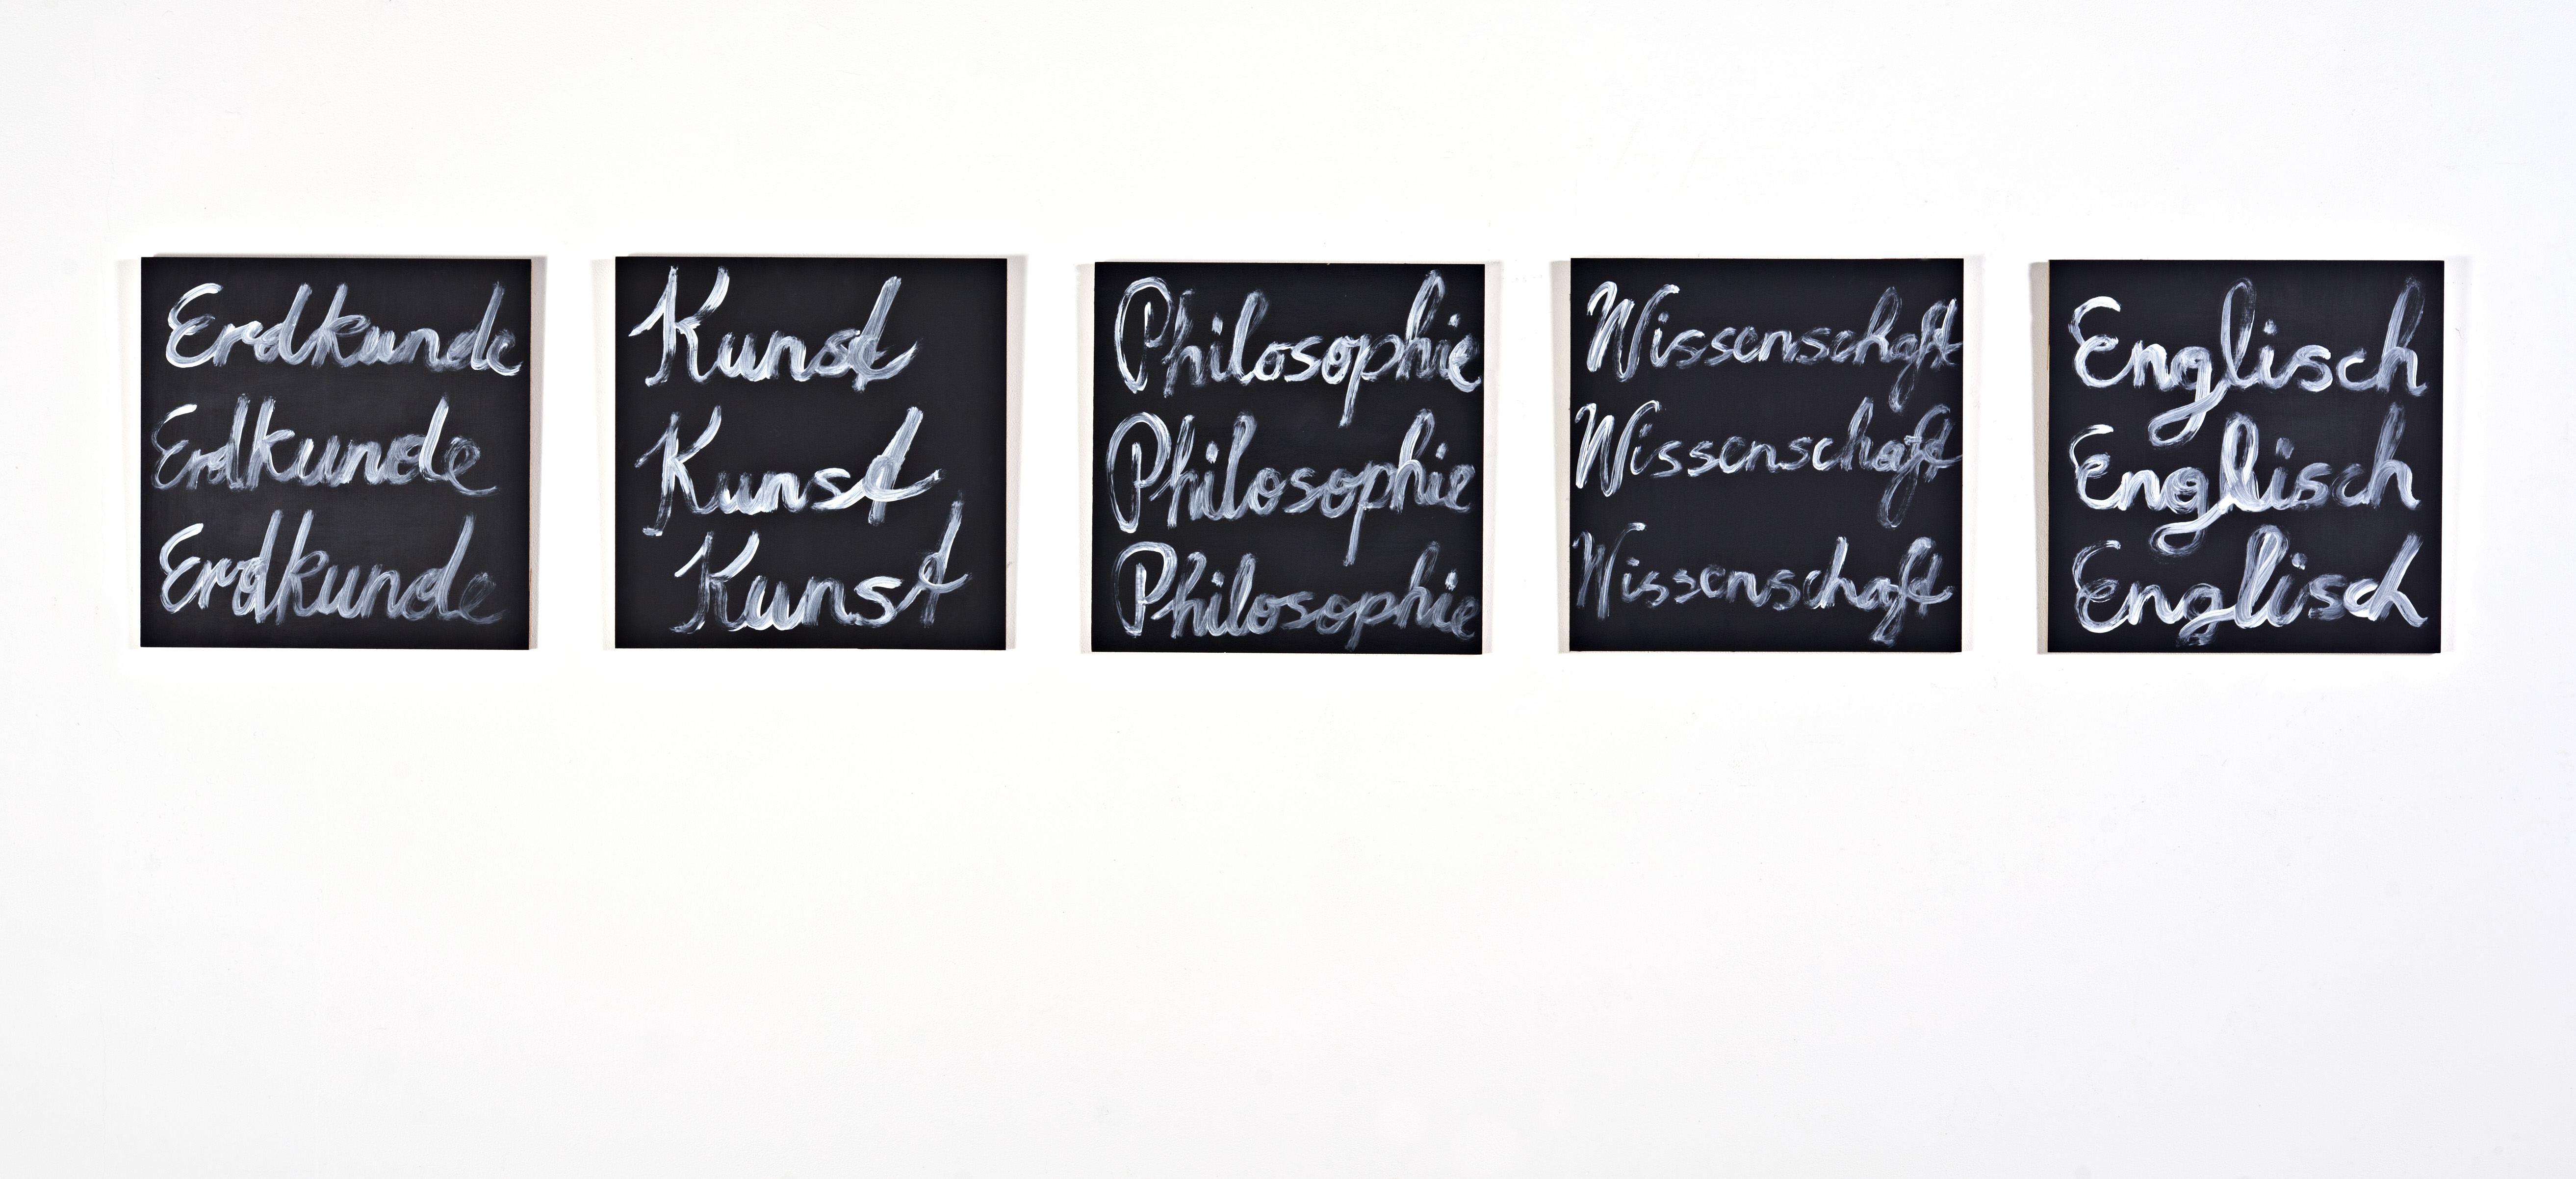 Erdkunde
Erdkunde
Erdkunde
Kunst
Kunst
Kunst
Philosophie
Philosophie
Philosophie
Wissenschaft
Wissenschaft
Wissenschaft
Englisch
Englisch
Englisch